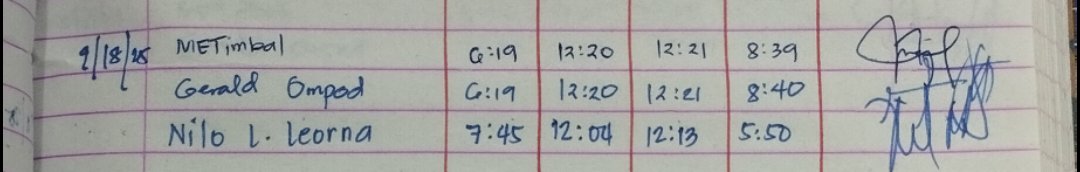 9/18/25 METimbal 6:19 12:20 12:21 8:39
Gerald Ompod 6:19 12:20 12:21 8:40
Nilo L. Leorna 7:45 12:04 12:13 5:50